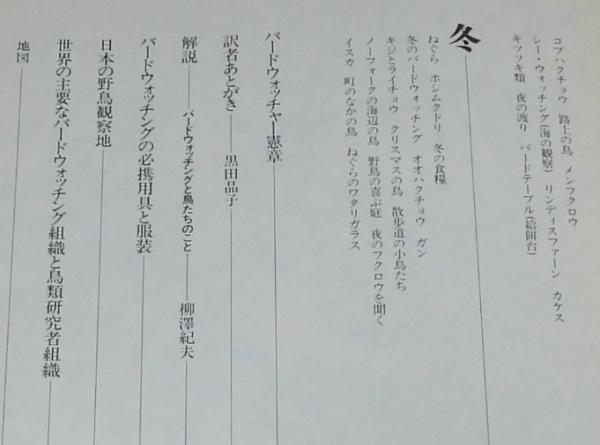 コブハクチョウ 路上の鳥 メンフクロウ
シー・ウォッチング(海の観察) リンディスファーン カケス
キツツキ類 夜の渡り バードテーブル(給餌台)
冬
ねぐら ホシムクドリ 冬の食糧
冬のバードウォッチング オオハクチョウ ガン
キジとライチョウ クリスマスの鳥 散歩道の小鳥たち
ノーフォークの海辺の鳥 野鳥の喜ぶ庭 夜のフクロウを聞く
イスカ 町のなかの鳥 ねぐらのワタリガラス
バードウォッチャー憲章
訳者あとがき――黒田晶子
解説――バードウォッチングと鳥たちのこと――柳澤紀夫
バードウォッチングの必携用具と服装
日本の野鳥観察地
世界の主要なバードウォッチング組織と鳥類研究者組織
地図